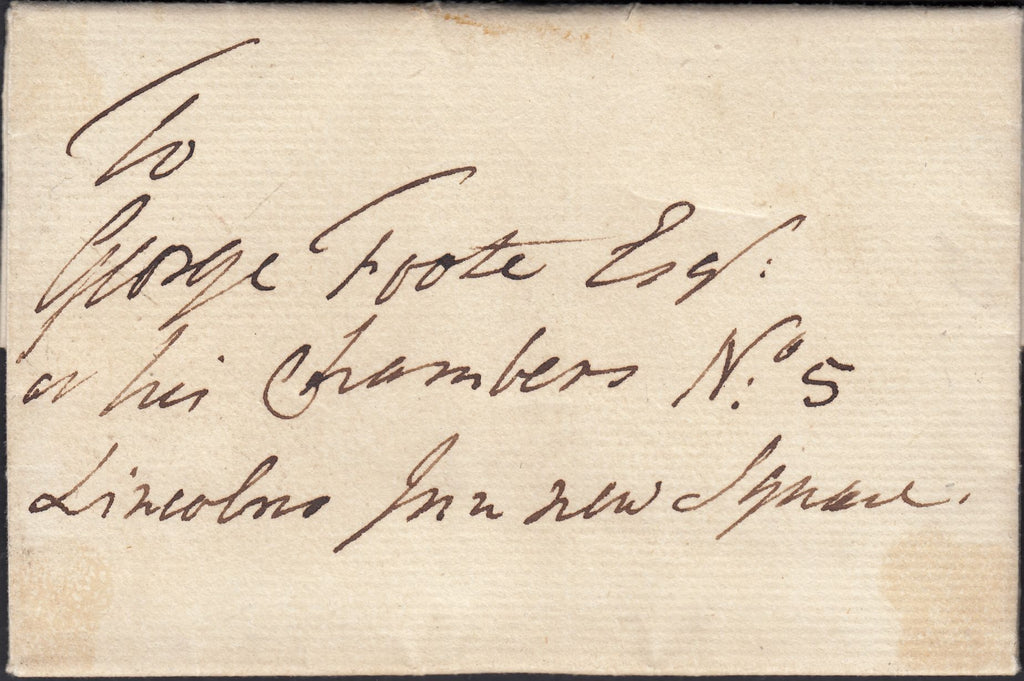 To
George Foote Esqr:
at his Chambers No. 5
Lincolns Inn new Square.